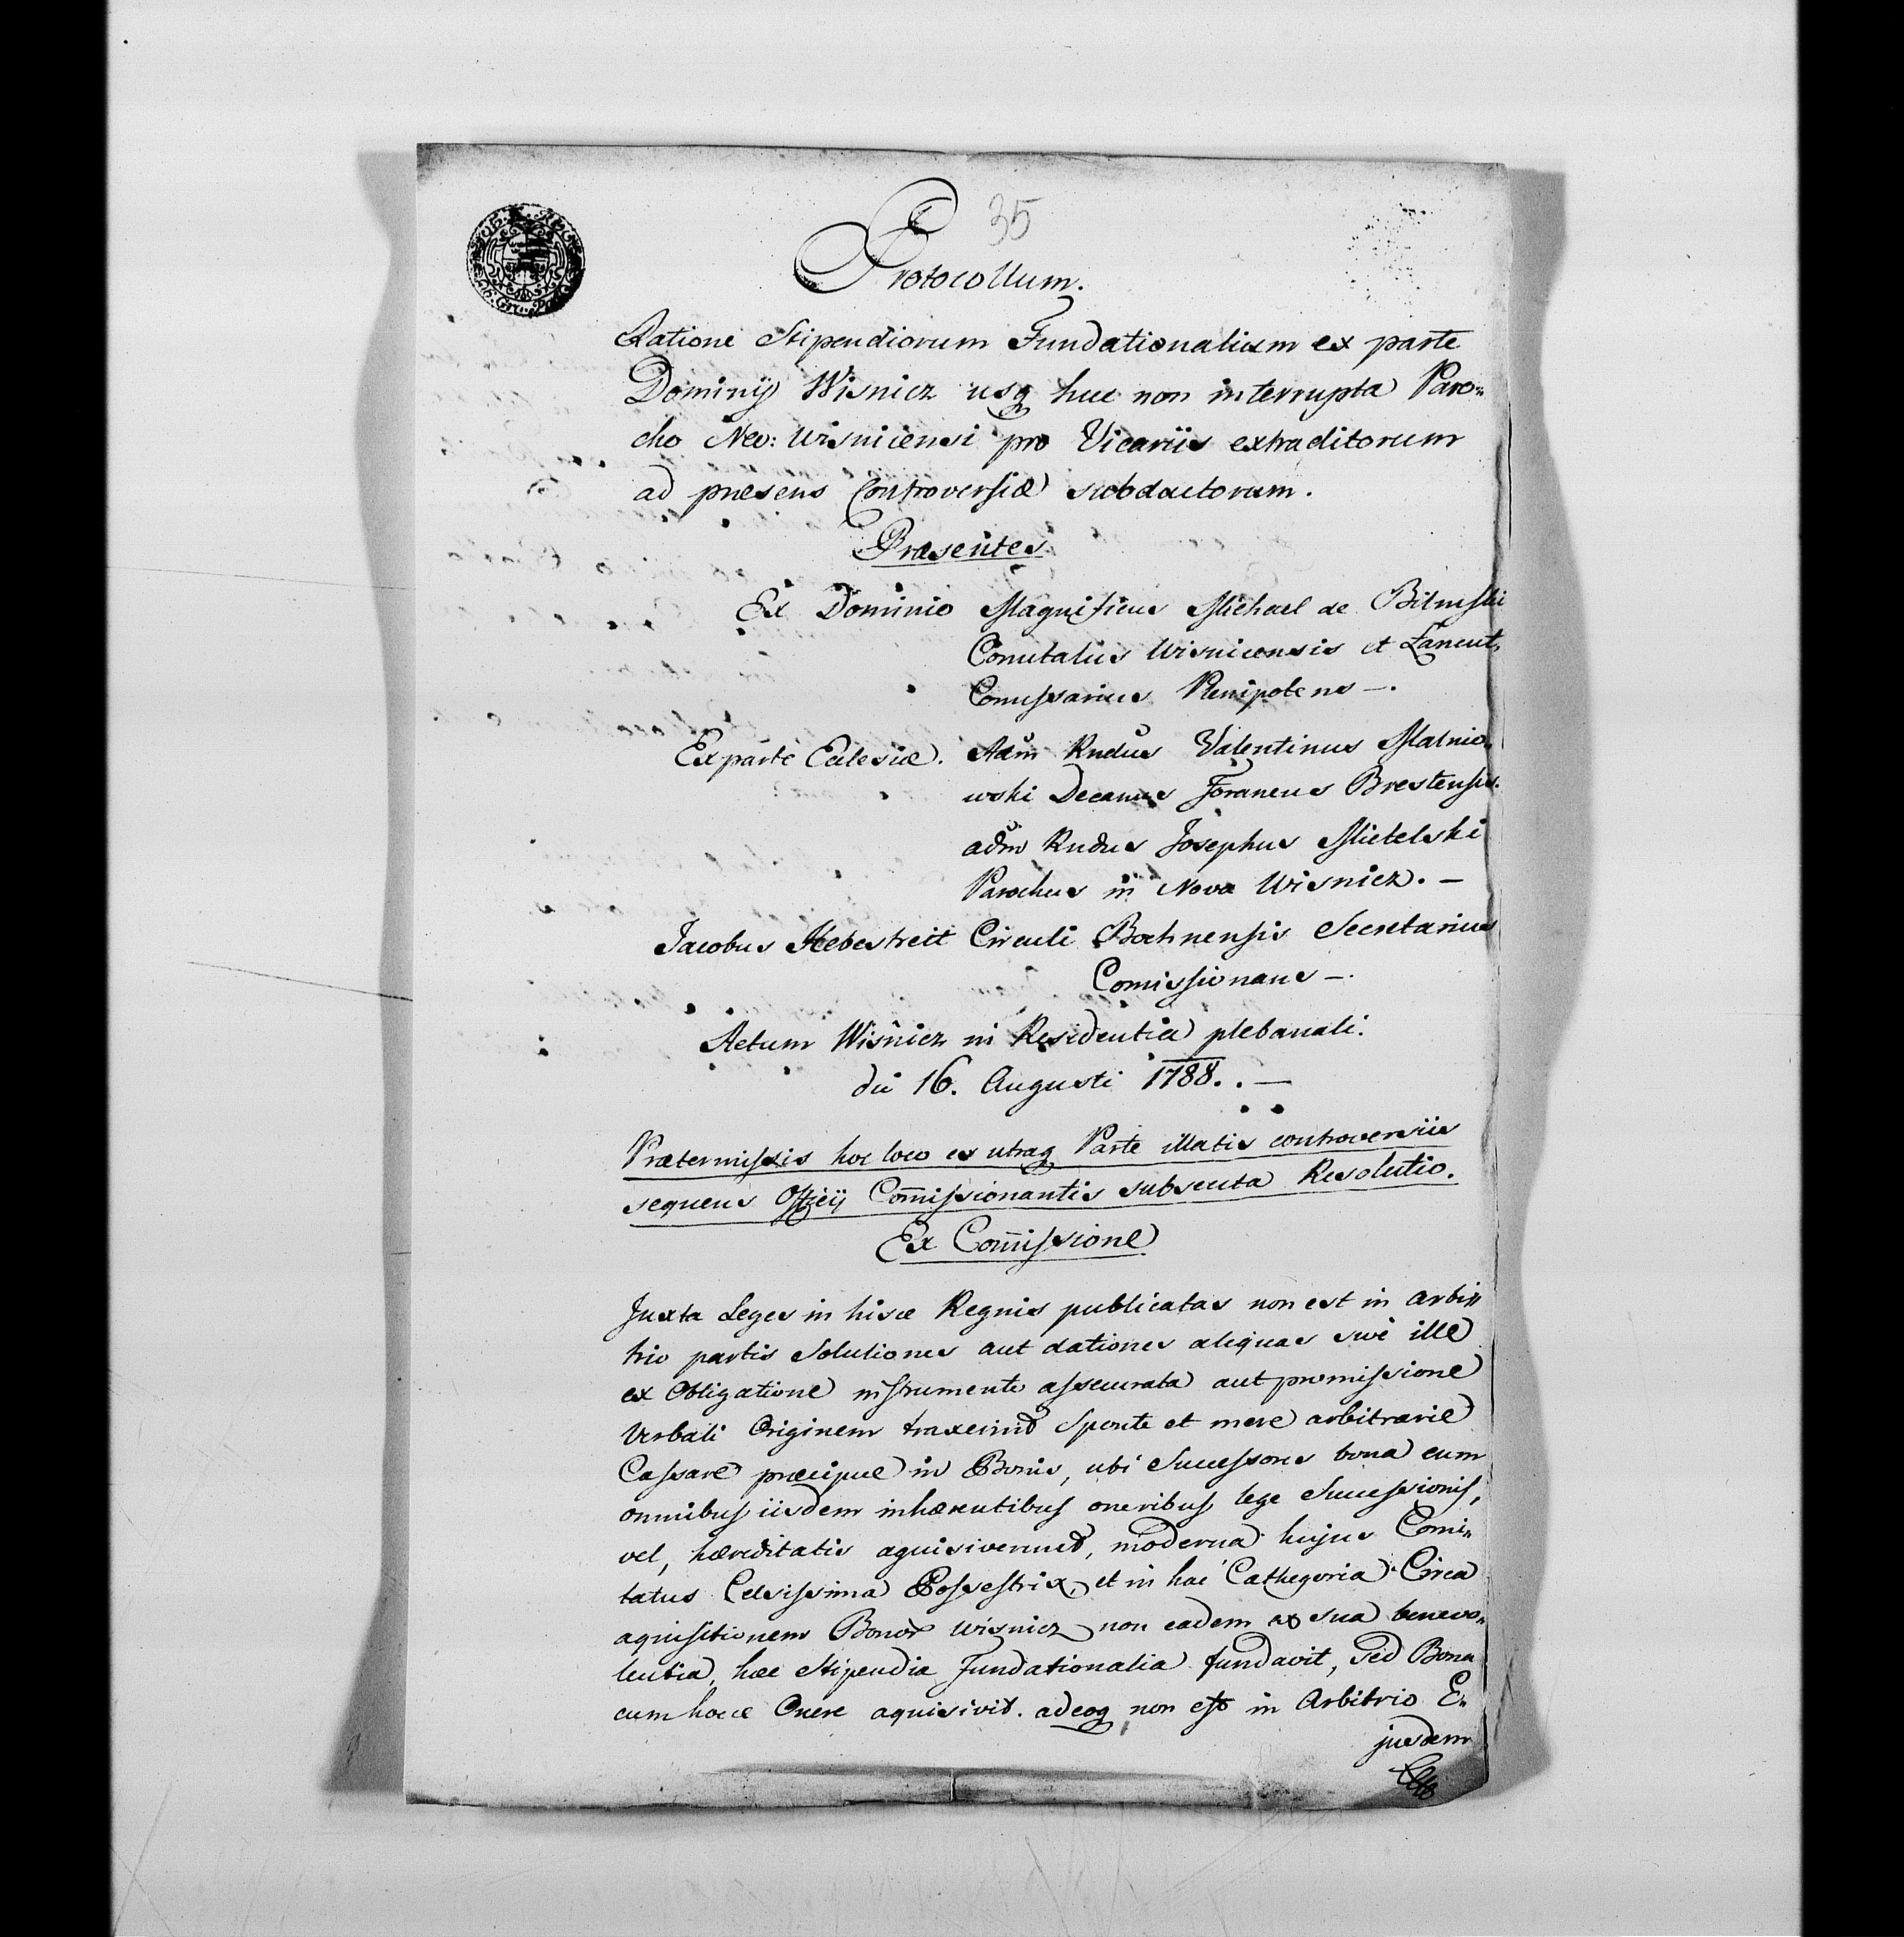 35
Protocollum.
Ratione Stipendiorum Fundationalium ex parte
Dominij Wisnicz usq huc non interrupta Paro„
cho Neo: Wisnicensi pro Vicariis extraditorum
ad præsens Controversiæ subdactorum.
Præsentes
Ex Dominio Magnificus Michael de
Comitatus Wisnicensis et Lancut,
Comissarius Plenipotens —.
Ex parte Eclesiæ. Adm Rndus Valentinus Matnio„
wski Decanus Foraneus Brestensis.
adm Rndus Josephus Mietelski
Parochus in Nova Wisnicz. —
Jacobus Hebestreit Circuli Bochnensis Secretarius
Comissionans —.
Actum Wisnicz in Residentia plebanali.
die 16. Augusti 1788. . —
Prætermissis hoc loco ex utraq Parte illatis controversiis
sequens Officij Com̄issionantis subsecuta Resolutio.
Ex Com̄issione
Juxta Leges in hisce Regnis publicatas non est in arbi„
trio partis Solutiones aut dationes aliquas sive ille
ex Obligatione instrumento assecurata aut promissione
Verbali Originem traxerint sponte et mere arbitrarie
Cassare præcipue in Bonis, ubi Successores bona cum
omnibus iisdem inhærentibus oneribus lege Successionis,
vel, hæreditatis aquisiverunt, moderna hujus Comi„
tatus Celsissima Possestrix, et in hac Cathegoria Circa
aquisitionem Bonor Wisnicz non eadem ex sua benevo„
lentia, hæc Stipendia Fundationalia fundavit, sed Bona
cum hocce Onere aquisivit. adeoq non est in Arbitrio E„
jusdem